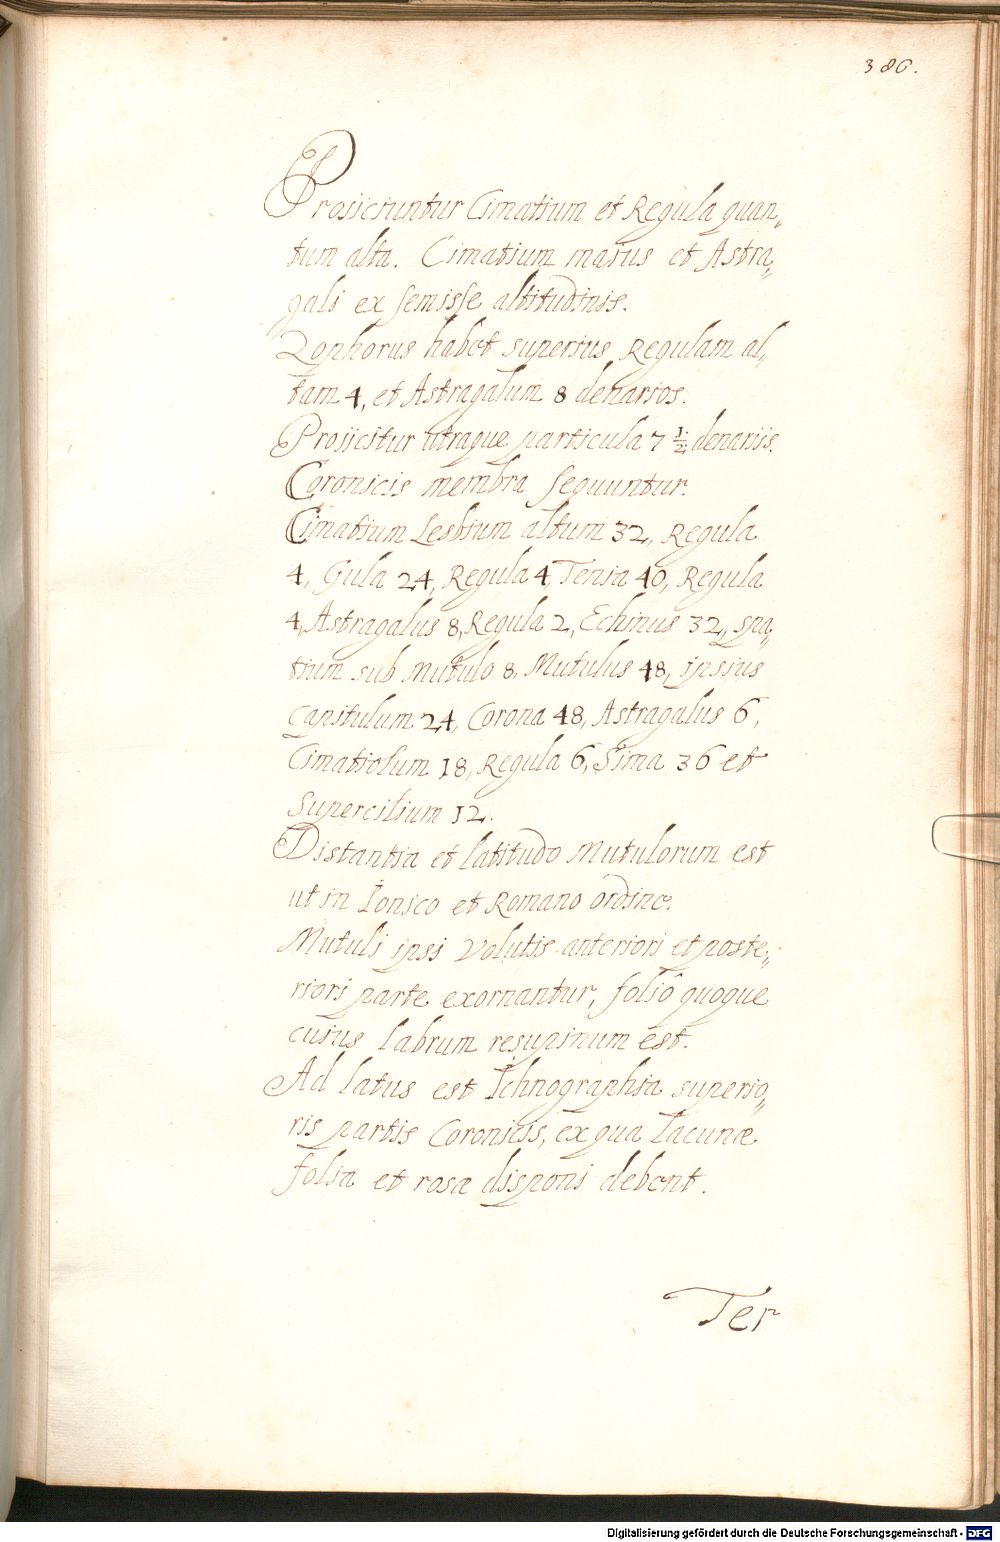 386.
Prosiciuntur Cimatium et Regula quan„
tum alta. Cimatium maius et Astra„
gali ex semisse altitudinis.
Zophorus habet superius Regulam al„
tam 4, et Astragalum 8 denarios.
Prosicitur utraque particula 7 1/2 denariis.
Coronicis membra sequuntur.
Cimatium Lesbium altum 32, Regula
4, Gula 24, Regula 4, Tenia 40, Regula
4, Astragalus 8, Regula 2, Echinus 32, spa„
tium sub Mutulo 8, Mutulus 48, ipsius
Capitulum 24, Corona 48, Astragalus 6,
Cimatiolum 18, Regula 6, Sima 36 et
Supercilium 12.
Distantia et latitudo Mutulorum est
ut in Ionico et Romano ordine.
Mutuli ipsi Volutis anteriori et poste„
riori parte exornantur, foliô quoque
cuius labrum resupinum est.
Ad latus est Ichnographia superio„
ris partis Coronicis, ex qua Lacunæ
folia et rosæ disponi debent.
Ter
Digitalisierung gefördert durch die Deutsche Forschungsgemeinschaft - DFG